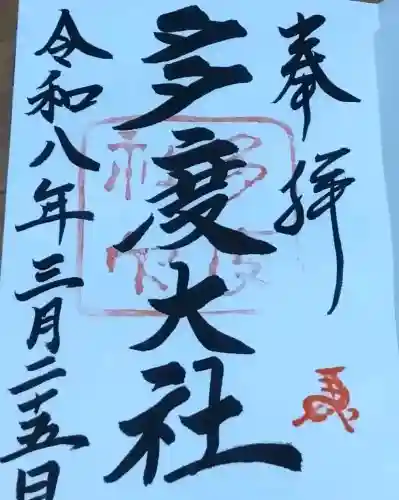 奉拝
多度大社
令和八年三月二十五日